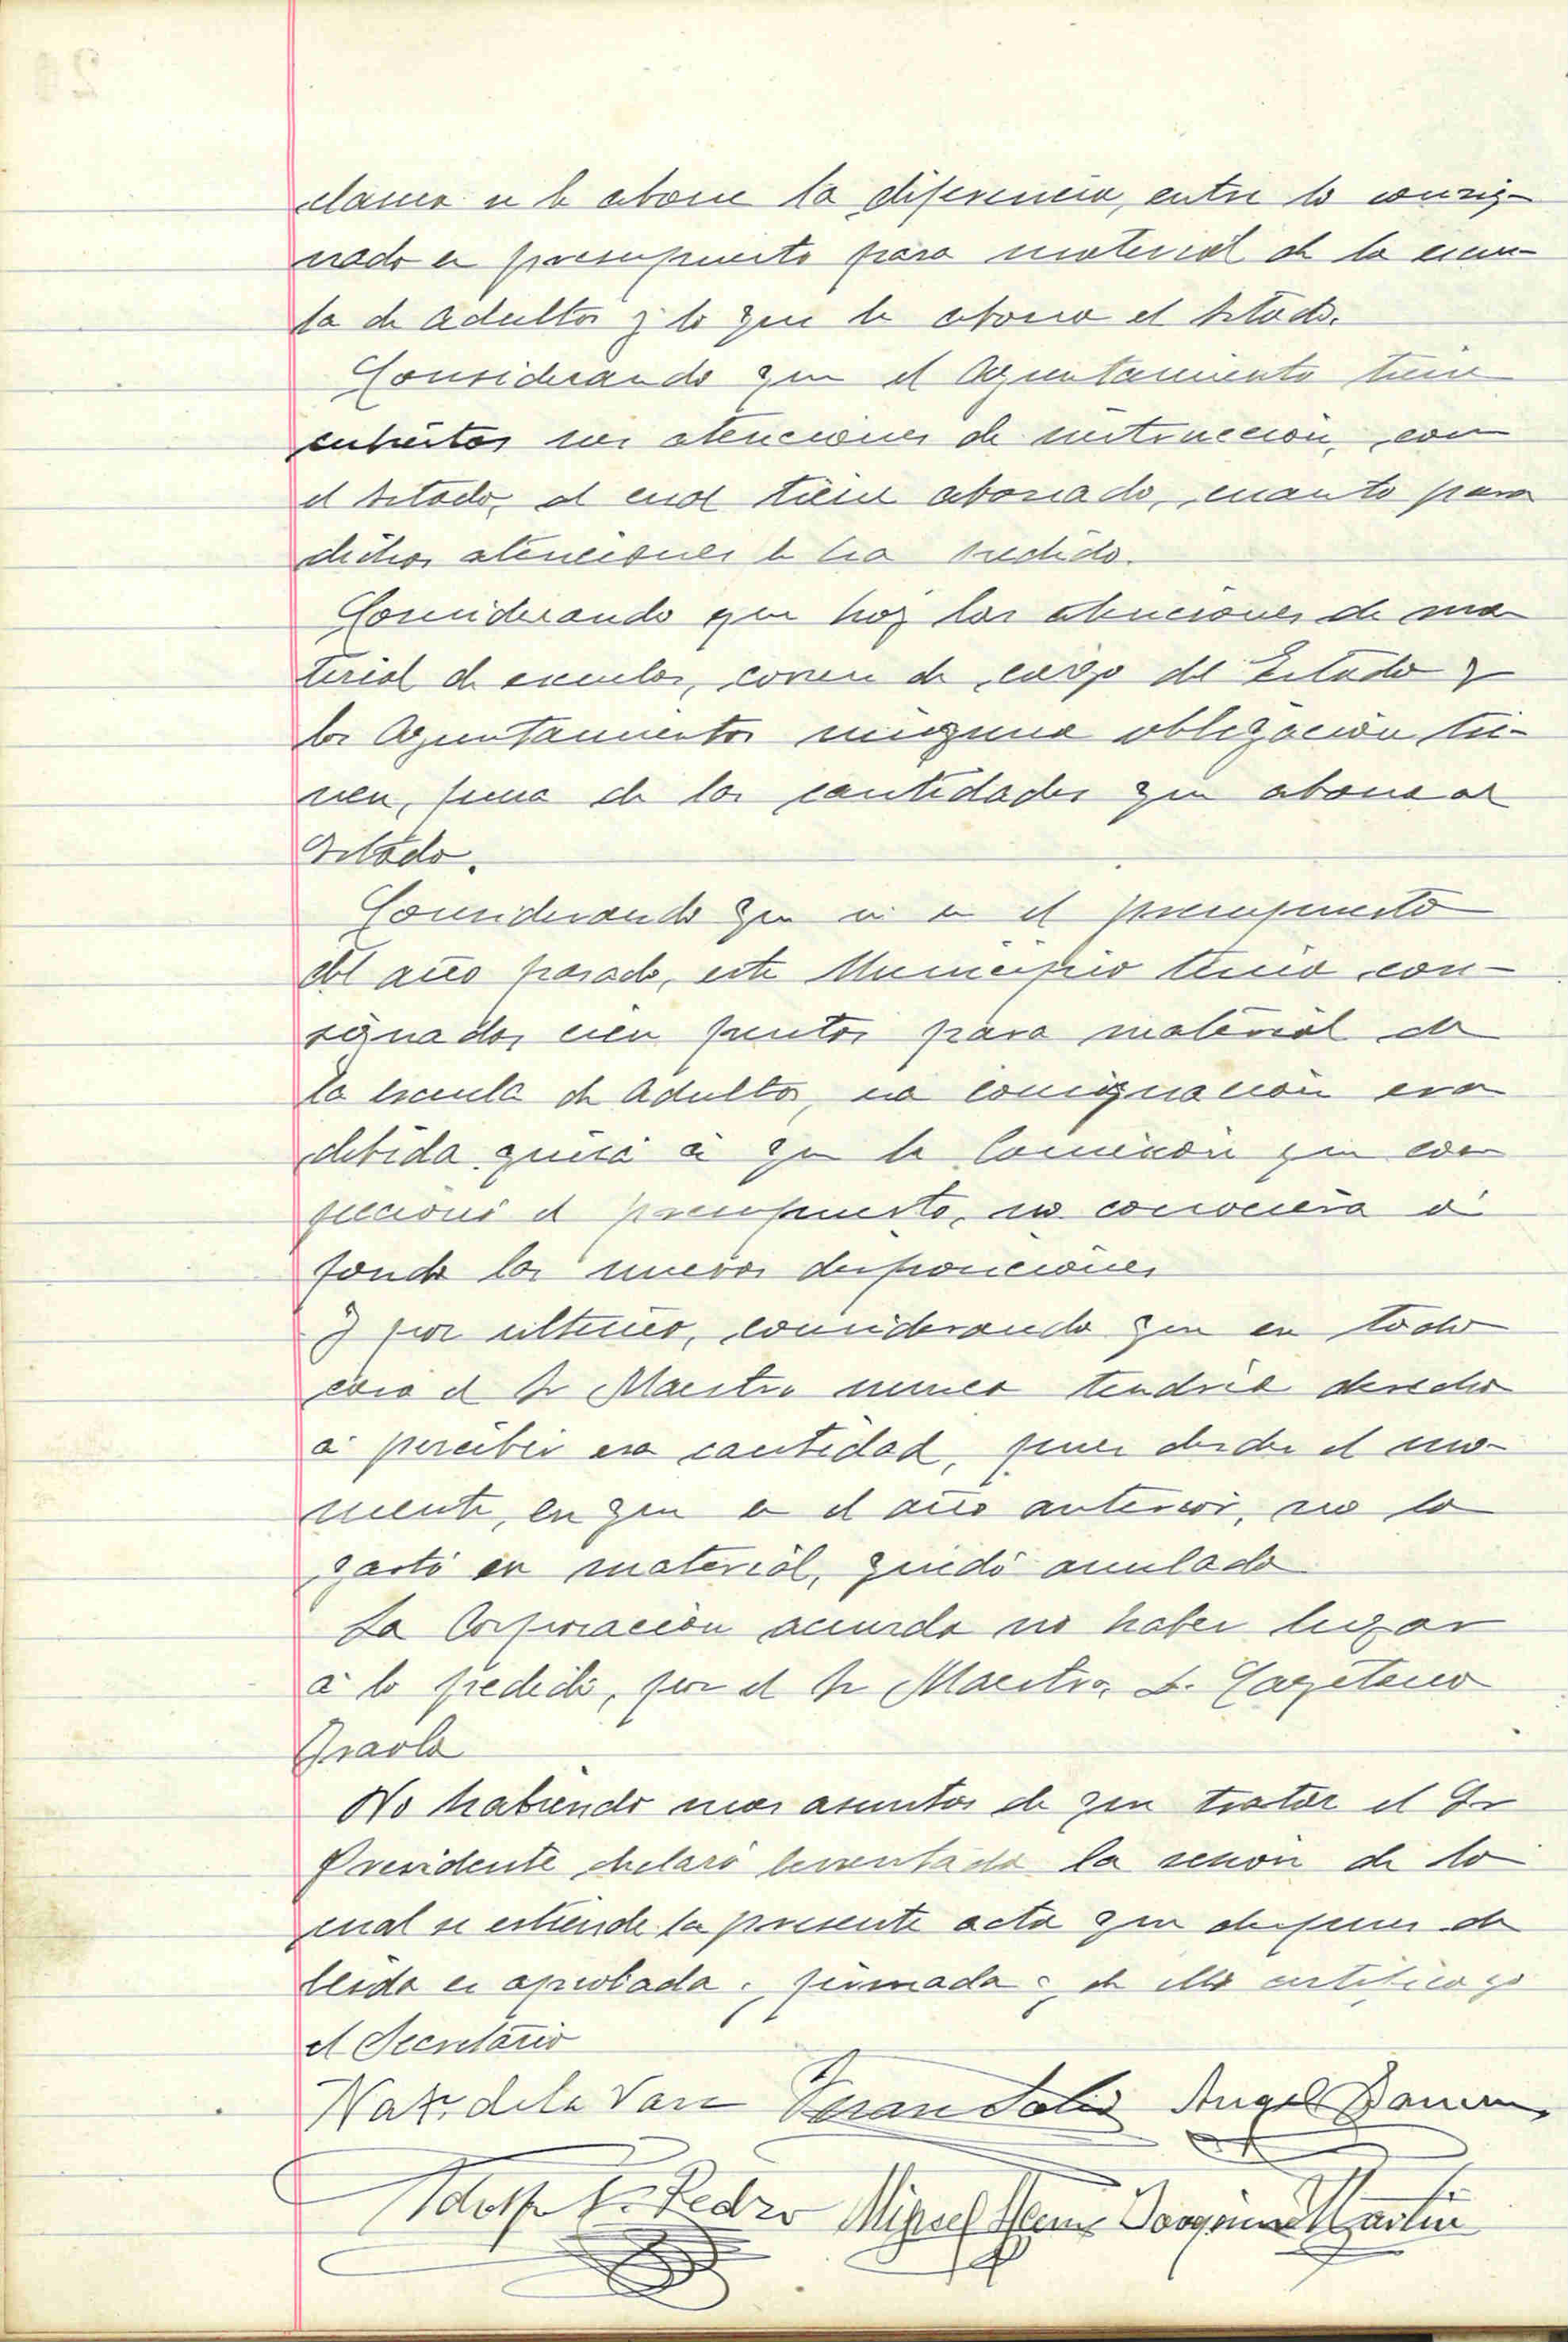 clama se le abone la diferencia, entre lo consig-
nado en presupuesto para material de la escue-
la de adultos y lo que le abona el Estado.
Considerando que el Ayuntamiento tiene
cubiertas sus atenciones de instrucción, con
el Estado, al cual tiene abonado, cuanto para
dichas atenciones le ha pedido.
Considerando que hoy las atenciones de ma
terial de escuelas, corren de cargo del Estado y
los Ayuntamientos ninguna obligación tie-
nen, fuera de las cantidades que abona al
Estado.
Considerando que si en el presupuesto
del año pasado, este Municipio tenia con-
signadas cien pesetas para material de
la escuela de Adultos, esa consignación era
debida quizá á que la Comisión que con
feccionó el presupuesto, no conociera á
fondo las nuevas disposiciones
Y por ultimo, considerando que en todo
caso el Sr Maestro nunca tendria derecho
á percibir esa cantidad, pues desde el mo-
mento, en que en el año anterior, no lo
gastó en material, quedó anulado
La Corporación acuerda no haber lugar
á lo pedido, por el Sr Maestro, D. Cayetano
No habiendo mas asuntos de que tratar el Sr
Presidente declaró levantada la sesión de lo
cual se extiende la presente acta que despues de
leida es aprobada y firmada y de ello certifico yo
el Secretario
Nat. de la Vara Solis Angel
Adolfo F. Pedro Miguel Joaquin Martin